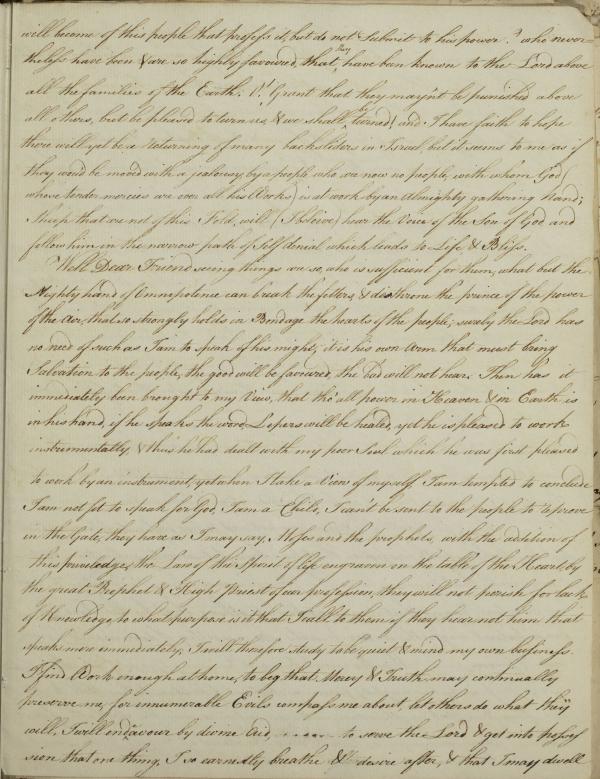 will become of this people that profess it, but do not Submit to his power? who never=
theless have been & are so highly favoured, that they have been known to the Lord above
all the families of the Earth. O! Grant that they mayn't be punished above
all others, but be pleased to turn us & we shall be turned, and I have faith to hope
there will yet be a returning of many backsliders in Israel, but it seems to me as if
they would be moved with a jealousy by a people who are now no people, with whom God
whose tender mercies are over all his Works) is at work by an Almighty gathering Hand;
Sheep that are not of this Fold, will (I believe) hear the Voice of the Son of God and
follow him in the narrow path of Self denial which leads to Life & Bliss.
Well Dear Friend seeing things are so, who is sufficient for them, what but the
Mighty hand of Omnipotence can break the fetters, & disthrone the prince of the power
of the Air, that so strongly holds in Bondage the hearts of the people, surely the Lord has
no need of such as I am to speak of his might, it is his own Arm that must bring
Salvation to the people, the good will be favoured, the bad will not hear. Then has it
immediately been brought to my View, that tho' all power in Heaven & in Earth is
in his hand, if he speaks the word Lepers will be healed, yet he is pleased to work
instrumentally & thus he had dealt with my poor Soul which he was first pleased
to work by an instrument, yet when I take a View of myself, I am tempted to conclude
I am not fit to speak for God, I am a Child, I can't be sent to the people to reprove
in the Gate, they have as I may say, Moses and the prophets, with the addition of
this priviledge, the Law of the Spirit of life engraven on the table of the Heart, by
the great Prophet & High Priest of our profession, they will not perish for lack
of Knowledge, to what purpose is it that I call to them if they hear not him that
speaks more immediately, I will therefore study to be quiet & mind my own business.
I find Work enough at home, to beg that Mercy & Truth may continually
preserve me, for innumerable Evils compass me about, let others do what they
will, I will endeavour by divine aid, to serve the Lord & get into posses
sion that one thing, I so earnestly breathe & desire after, & that I may dwell